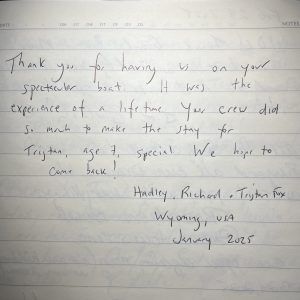 NOTES
Thank you for having us on your
spectacular boat. It was the
experience of a lifetime. Your crew did
so much to make the stay for
Tristan, age 7, special. We hope to
come back!
Hadley, Richard + Tristan Fox
Wyoming, USA
January 2025